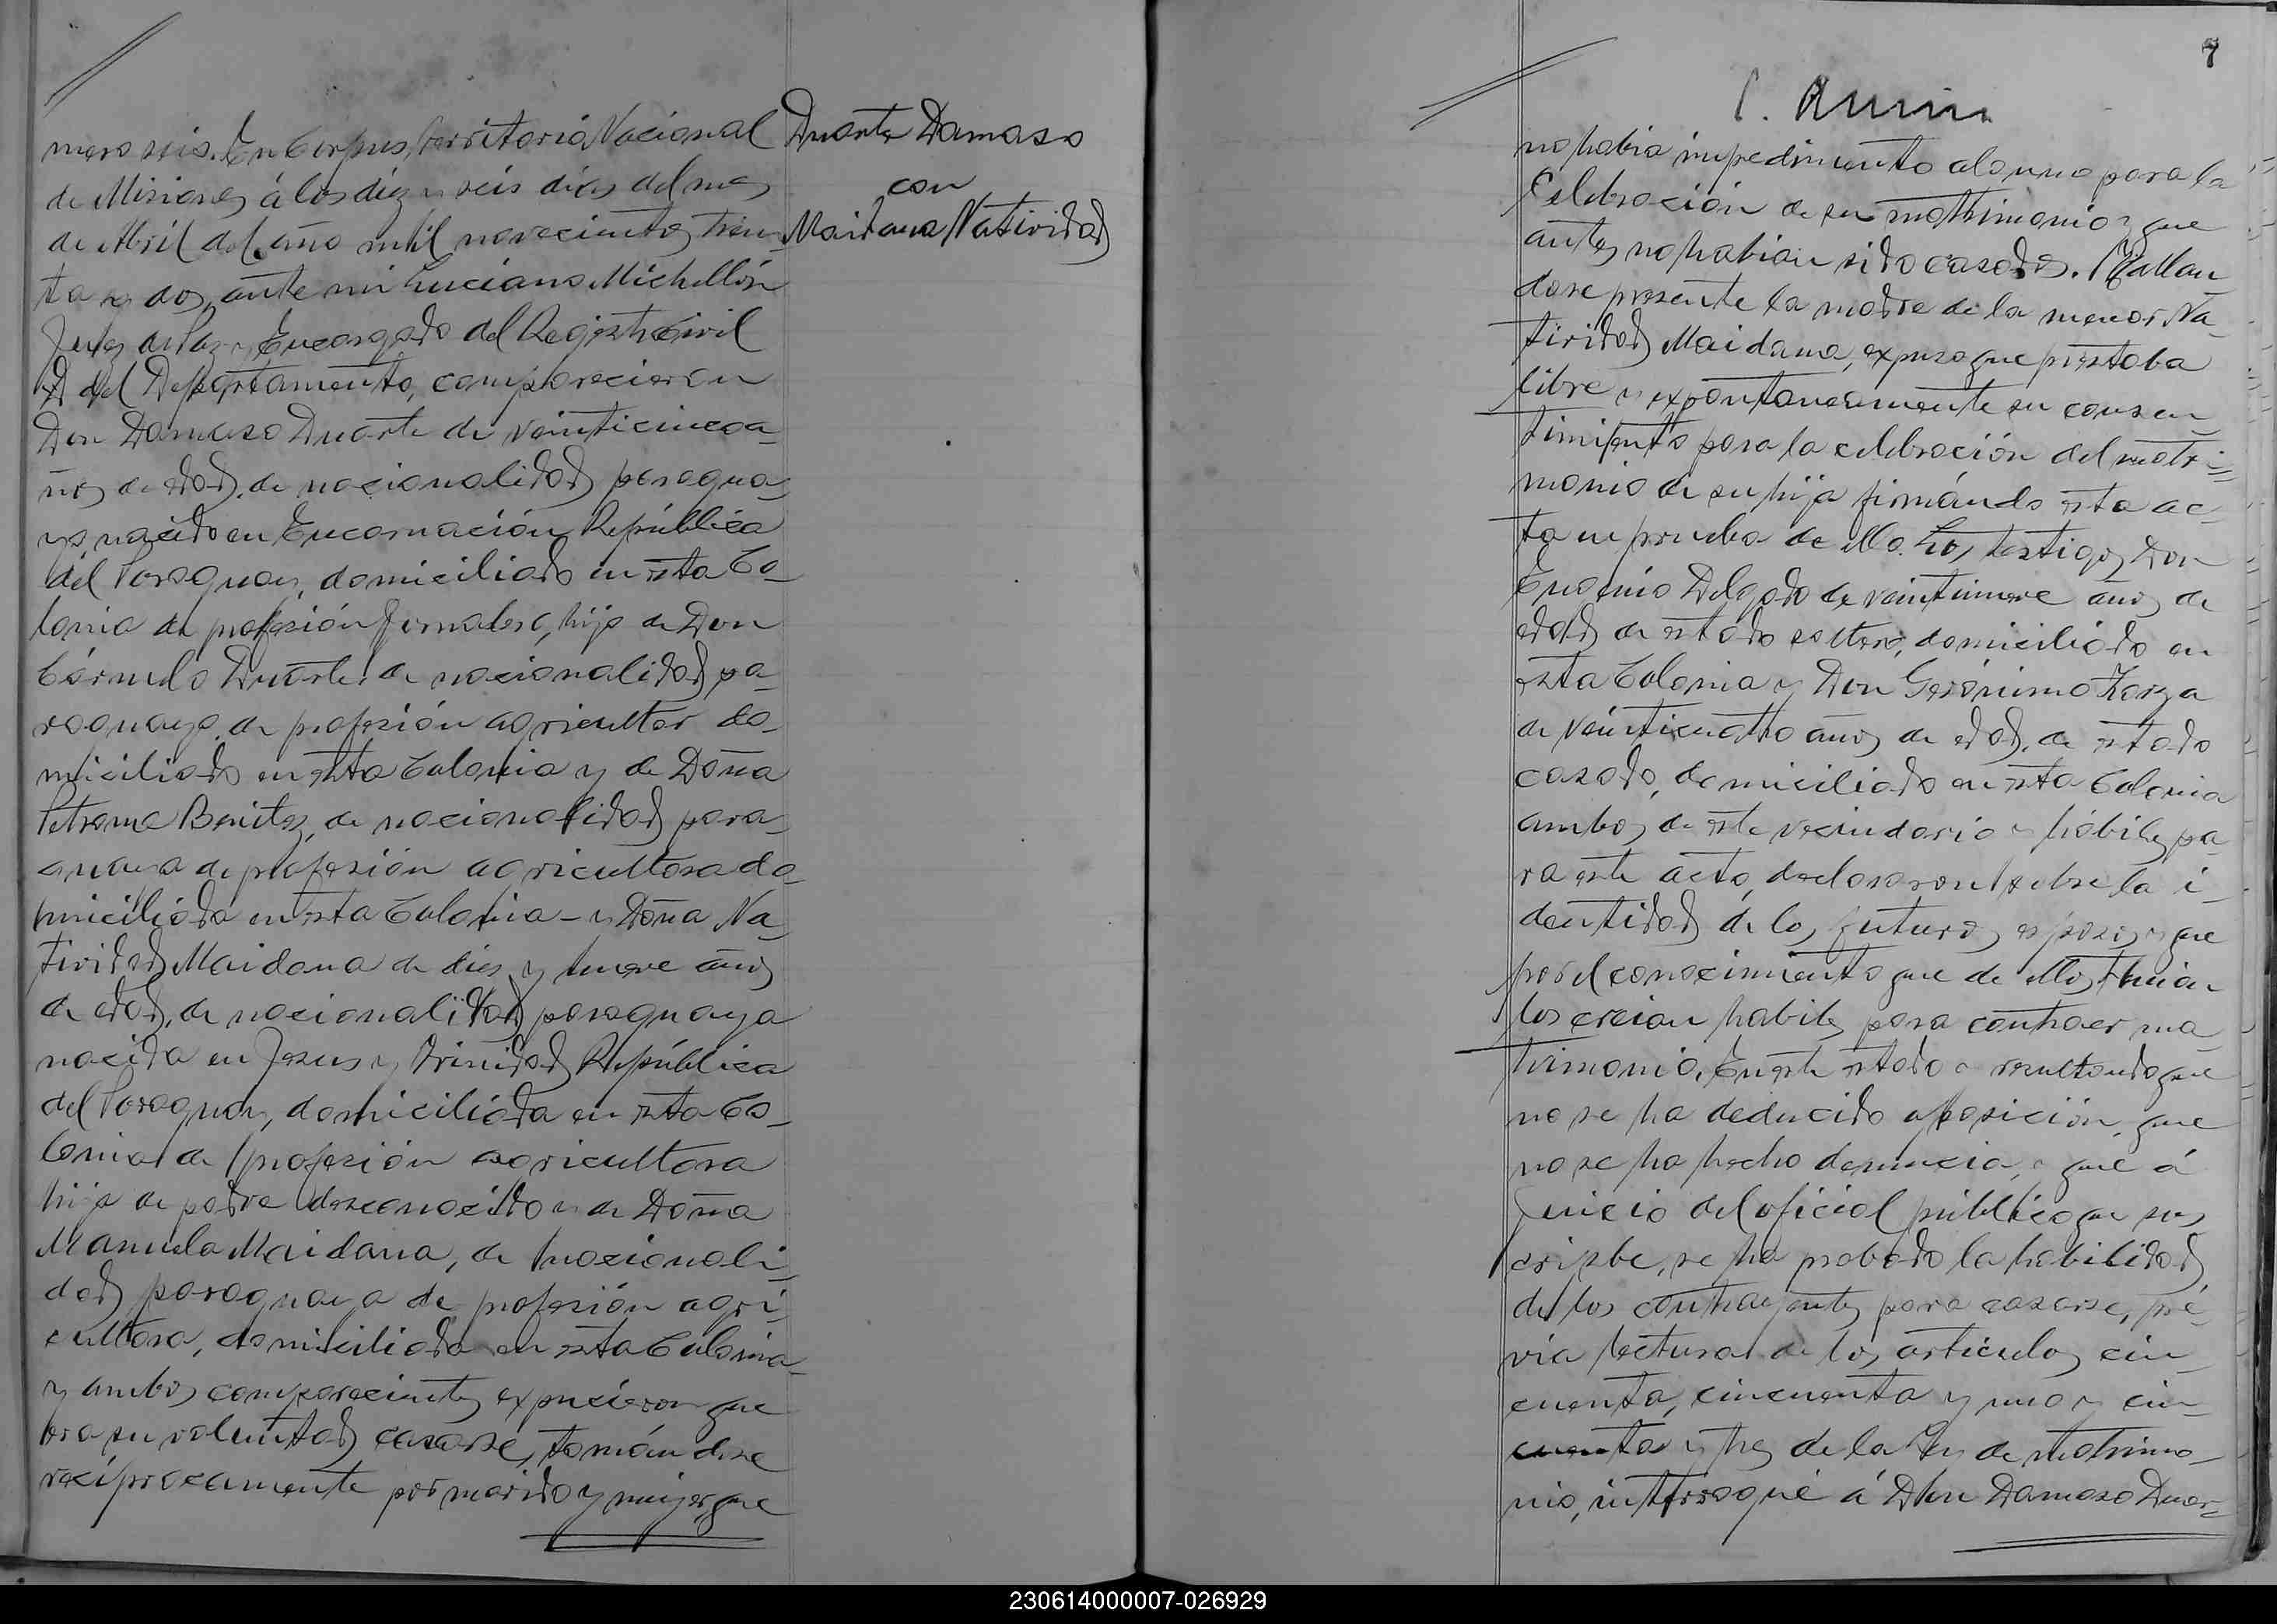 mero seis. En Corpus, Territorio Nacional
de Misiones á los diez y seis dias del mes
de Abril del año mil novecientos trein
ta y dos, ante mi Luciano Michellón
Juez de Paz y Encargado del Registro Civil
del Departamento, comparecieron
Don Damaso Duarte de veinticinco a-
ños de edad, de nacionalidad paragua-
yo, nacido en Encarnación República
del Paraguay, domiciliado en esta Co-
lonia de profesión Jornalero, hijo de Don
Duarte, de nacionalidad pa-
raguayo, de profesión agricultor do-
miciliado en esta Colonia y de Doña
Benitez, de nacionalidad para-
guaya de profesión agricultora do-
miciliada en esta Colonia - y Doña Na-
tividad Maidana de diez y nueve años
de edad, de nacionalidad paraguaya
nacida en Jesus y Trinidad República
del Paraguay, domiciliada en esta Co-
lonia de profesión agricultora
hija de padre desconocido y de Doña
Manuela Maidana, de nacionali-
dad paraguaya de profesión agri-
cultora, domiciliada en esta Colonia-
y ambos comparecientes expucieron que
era su voluntad casarse, tomándose
recíprocamente por marido y mujer, que
Duarte Damaso
con
Maidana Natividad
7
no habia impedimento alguno para la
Celebración de su matrimonio y que
antes no habian sido casados. Hallan-
dose presente la madre de la menor Na-
tividad Maidana, expuso que prestaba
libre y expontaneamente su consen-
timiento para la celebración del matri-
monio de su hija firmándo esta ac-
ta en prueba de ello. Los testigos Don
Eugenio Delgado de veintinueve años de
edad de estado soltero, domiciliado en
esta Colonia y Don Gerónimo Zarza
de veinticuatro años de edad, de estado
casado, domiciliado en esta Colonia
ambos de este vecindario y hábiles pa-
ra este acto, declararon sobre la i-
dentidad de los futuros esposos y que
por el conocimiento que de ellos tenian
los creian habiles para contraer ma-
trimonio. En este estado y resultando que
no se ha deducido oposición, que
no se ha hecho denuncia, y que á
Juicio del oficial público que sus
cribe, se ha probado la habilidad
de los contrayentes para casarse, pré-
via lectura de los articulos cin
cuenta, cincuenta y uno y cin-
cuenta y tres de la Ley de Matrimo-
nio, interrogué á Don Damaso Duar-
230614000007-026929